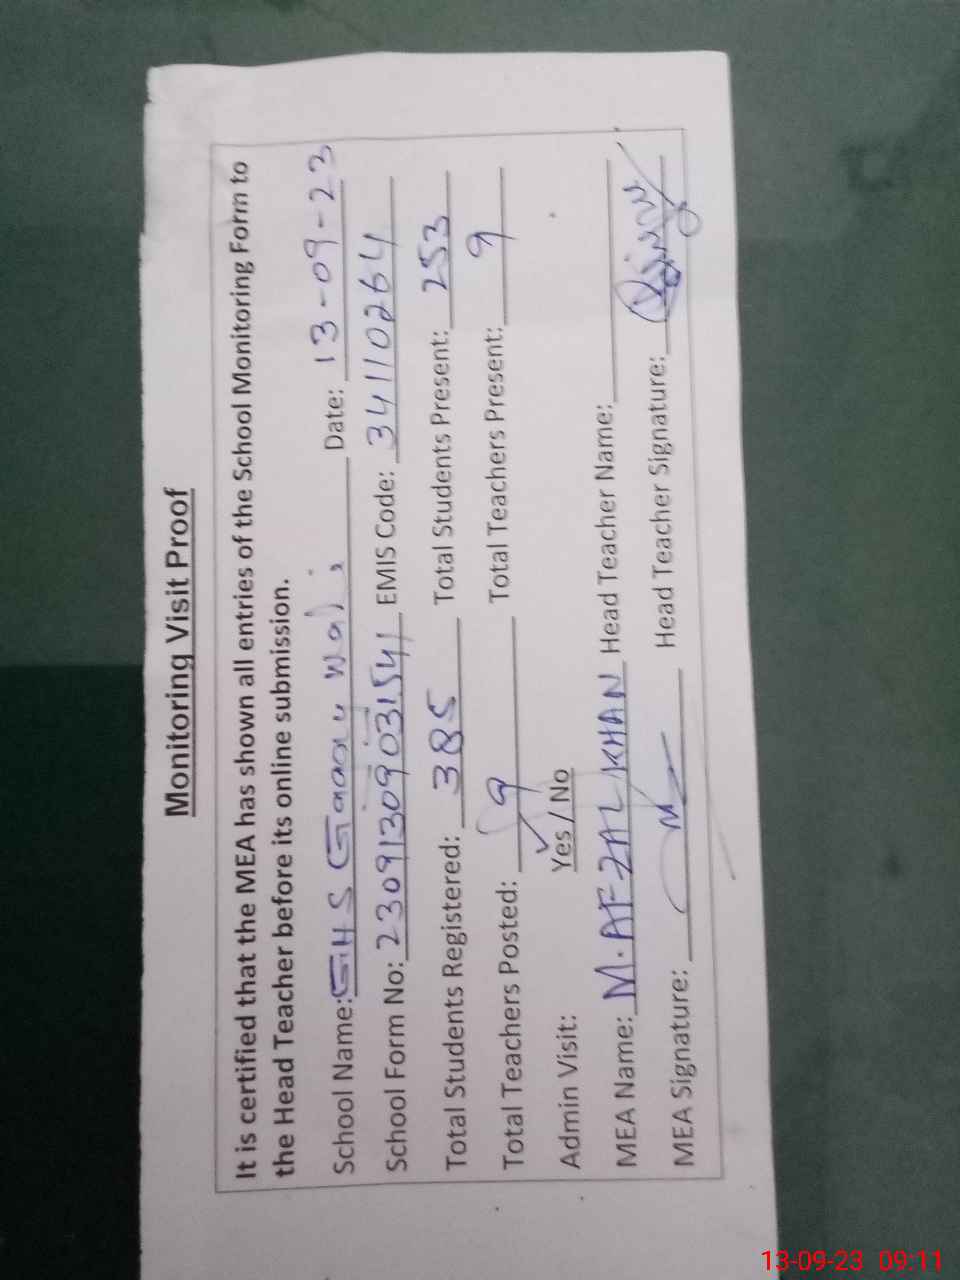 Monitoring Visit Proof
It is certified that the MEA has shown all entries of the School Monitoring Form to
the Head Teacher before its online submission.
School Name: GHS Date: 13-09-23
School Form No: 230913090903154 EMIS Code: 34110264
Total Students Registered: 385 Total Students Present: 253
Total Teachers Posted: 9 Total Teachers Present: 9
Admin Visit: Yes / No
MEA Name: M. AFZAL KHAN Head Teacher Name:
MEA Signature: Head Teacher Signature:
13-09-23 09:11